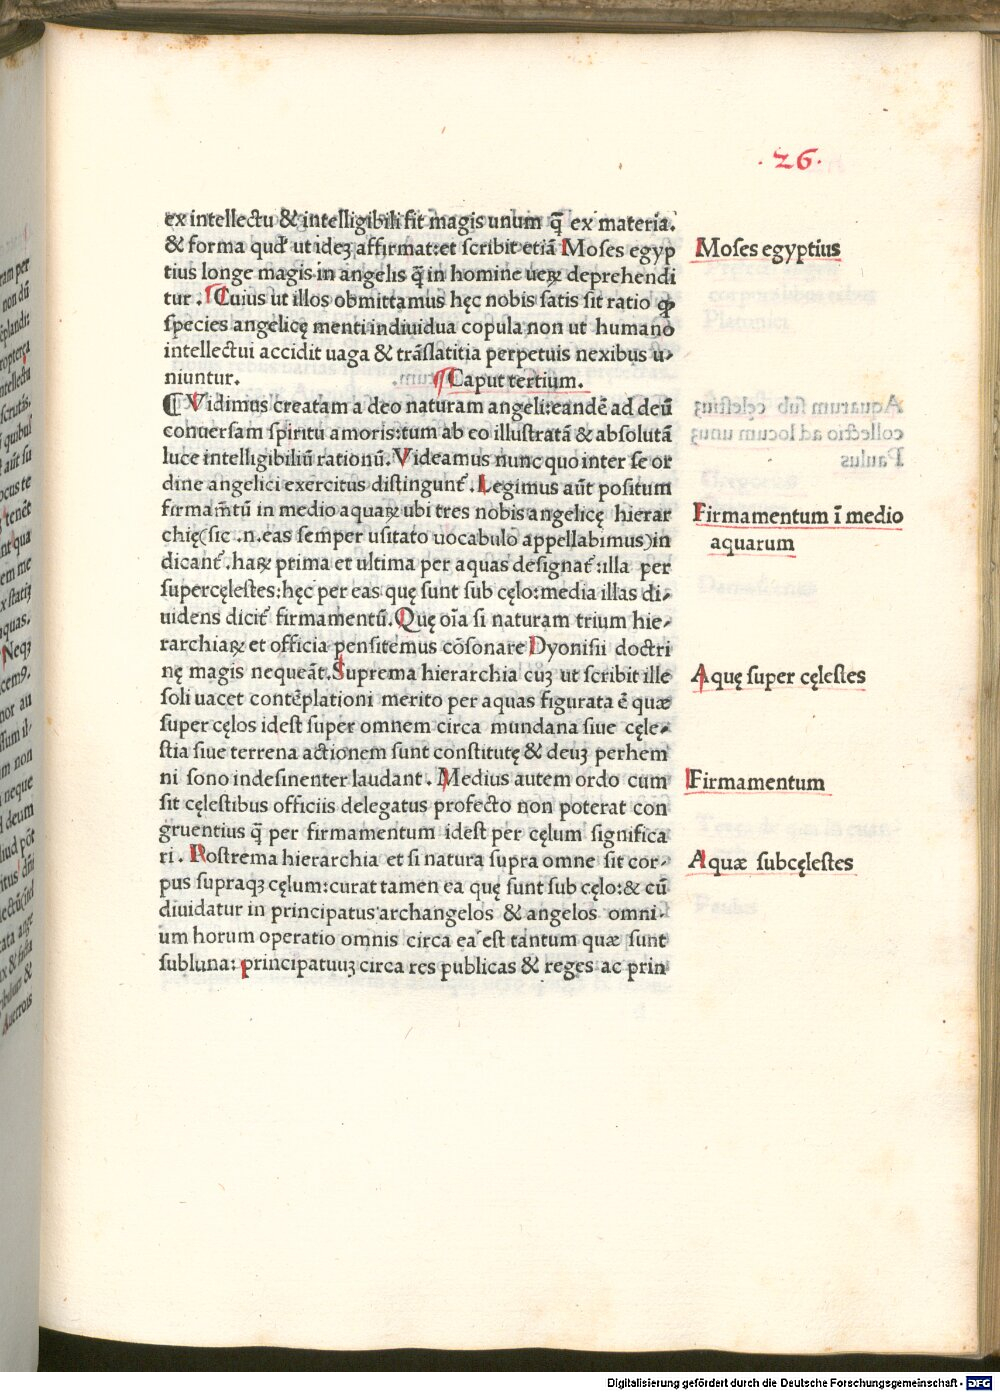 .26.
ex intellectu & intelligibili fit magis unum q̄ ex materia.
& forma qud' ut ideʒ affirmat:et scribit etiā Moses egyp
tius longe magis in angelis q̄ in homine ueꝝ deprehendi
tur. Cuius ut illos obmittamus hęc nobis satis sit ratio ꝙ
species angelicę menti indiuidua copula non ut humano
intellectui accidit uaga & trāslatitia perpetuis nexibus u-
niuntur. Caput tertium.
Vidimus creatam a deo naturam angeli:eandē ad deū
conuersam spiritu amoris:tum ab eo illustratā & absolutā
luce intelligibiliū rationū. Videamus nunc quo inter se or
dine angelici exercitus distingunt'. Legimus aūt positum
firmam̄tū in medio aquaꝝ ubi tres nobis angelicę hierar
chię(sic .n. eas semper usitato uocabulo appellabimus)in
dicant'. haꝝ prima et ultima per aquas designat':illa per
supercęlestes:hęc per eas quę sunt sub cęlo:media illas di-
uidens dicit' firmamentū. Quę oīa si naturam trium hie-
rarchiaꝝ et officia pensitemus cōsonare Dyonisii doctri
nę magis nequeāt. Suprema hierarchia cuʒ ut scribit ille
soli uacet contēplationi merito per aquas figurata ē quæ
super cęlos idest super omnem circa mundana siue cęle-
stia siue terrena actionem sunt constitutę & deuʒ perhem
ni sono indesinenter laudant. Medius autem ordo cum
sit cęlestibus officiis delegatus profecto non poterat con
gruentius q̄ per firmamentum idest per cęlum significa
ri. Postrema hierarchia et si natura supra omne sit cor-
pus supraqʒ cęlum:curat tamen ea quę sunt sub cęlo:& cū
diuidatur in principatus archangelos & angelos omni-
um horum operatio omnis circa ea est tantum quæ sunt
sub luna: principatuuʒ circa res publicas & reges ac prin
Moses egyptius
Firmamentum ī medio
aquarum
Aquę super cęlestes
Firmamentum
Aquæ subcęlestes
Digitalisierung gefördert durch die Deutsche Forschungsgemeinschaft - DFG